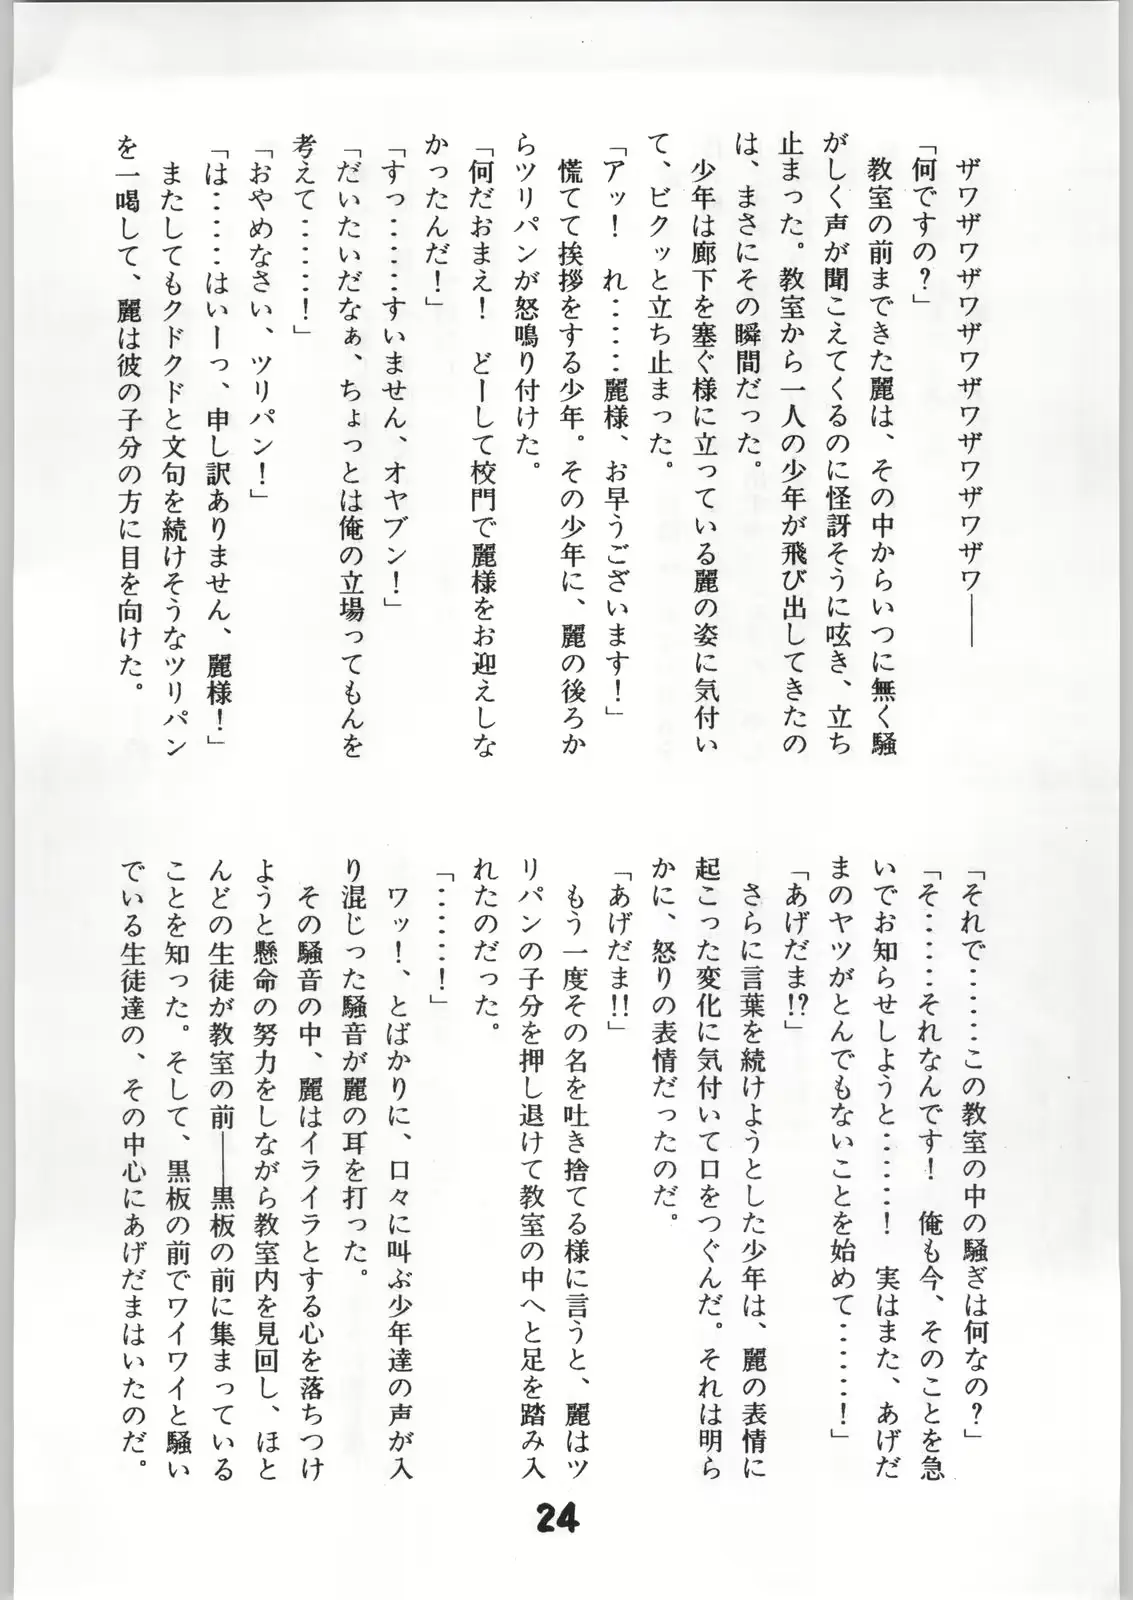 ザワザワザワザワザワザワザワザワ――
「何ですの？」
教室の前まできた麗は、その中からいつに無く騒
がしく声が聞こえてくるのに怪訝そうに呟き、立ち
止まった。教室から一人の少年が飛び出してきたの
は、まさにその瞬間だった。
少年は廊下を塞ぐ様に立っている麗の姿に気付い
て、ビクッと立ち止まった。
「アッ！　れ‥‥‥麗様、お早うございます！」
慌てて挨拶をする少年。その少年に、麗の後ろか
らツリパンが怒鳴り付けた。
「何だおまえ！　どーして校門で麗様をお迎えしな
かったんだ！」
「すっ‥‥‥すいません、オヤブン！」
「だいたいだなぁ、ちょっとは俺の立場ってもんを
考えて‥‥‥！」
「おやめなさい、ツリパン！」
「は‥‥‥はいーっ、申し訳ありません、麗様！」
またしてもクドクドと文句を続けそうなツリパン
を一喝して、麗は彼の子分の方に目を向けた。
「それで‥‥‥この教室の中の騒ぎは何なの？」
「そ‥‥‥それなんです！　俺も今、そのことを急
いでお知らせしようと‥‥‥！　実はまた、あげだ
まのヤツがとんでもないことを始めて‥‥‥！」
「あげだま!?」
さらに言葉を続けようとした少年は、麗の表情に
起こった変化に気付いて口をつぐんだ。それは明ら
かに、怒りの表情だったのだ。
「あげだま!!」
もう一度その名を吐き捨てる様に言うと、麗はツ
リパンの子分を押し退けて教室の中へと足を踏み入
れたのだった。
「‥‥‥！」
ワッ！、とばかりに、口々に叫ぶ少年達の声が入
り混じった騒音が麗の耳を打った。
その騒音の中、麗はイライラとする心を落ちつけ
ようと懸命の努力をしながら教室内を見回し、ほと
んどの生徒が教室の前――黒板の前に集まっている
ことを知った。そして、黒板の前でワイワイと騒い
でいる生徒達の、その中心にあげだまはいたのだ。
24